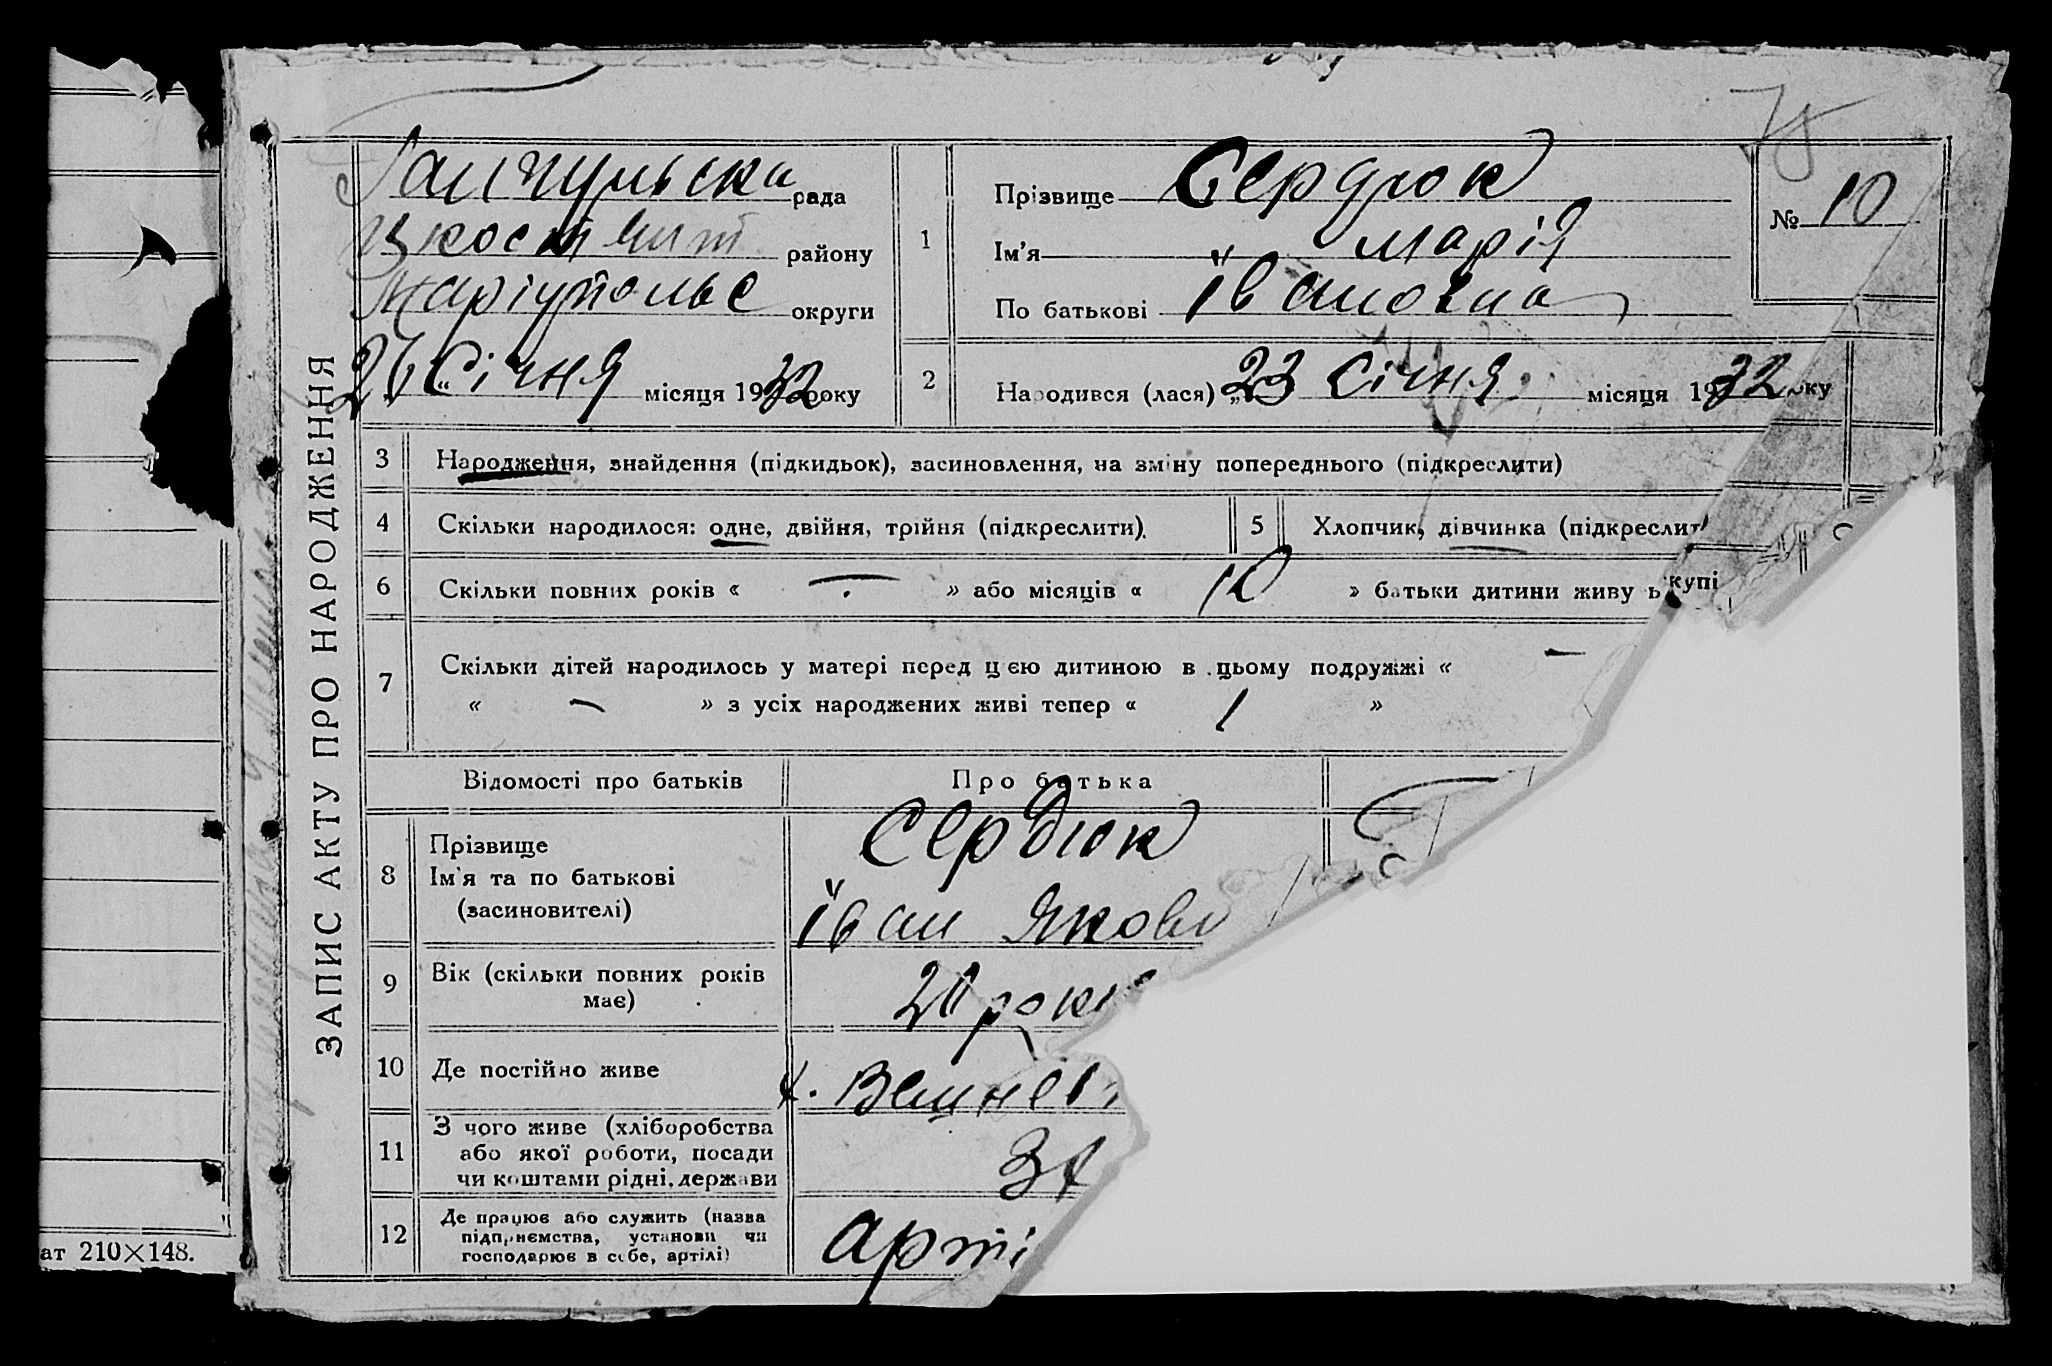 ЗАПИС АКТУ ПРО НАРОДЖЕННЯ
рада
району
Маріупольс округи
26 Січня місяця 1932 року
1
Прізвище Сердюк
Ім'я Марія
По батькові Івановна
№ 10
2
Народився (лася) „23 Січня місяця 1932 оку
3 Народження, знайдення (підкидьок), засиновлення, на зміну попереднього (підкреслити)
4 Скільки народилося: одне, двійня, трійня (підкреслити).
5 Хлопчик, дівчинка (підкреслит
6 Скільки повних років « — » або місяців « 10 » батьки дитини живу ь купі
7 Скільки дітей народилось у матері перед цією дитиною в цьому подружжі « —
« — » з усіх народжених живі тепер « 1 »
Відомості про батьків
Про батька
8 Прізвище
Ім'я та по батькові
(засиновителі)
Сердюк
Іван Якови
9 Вік (скільки повних років
має)
20 роки
10 Де постійно живе
11 З чого живе (хліборобства
або якої роботи, посади
чи коштами рідні, держави
12 Де працює або служить (назва
підприємства, установи чи
господарює в себе, артілі)
арті
ат 210×148.